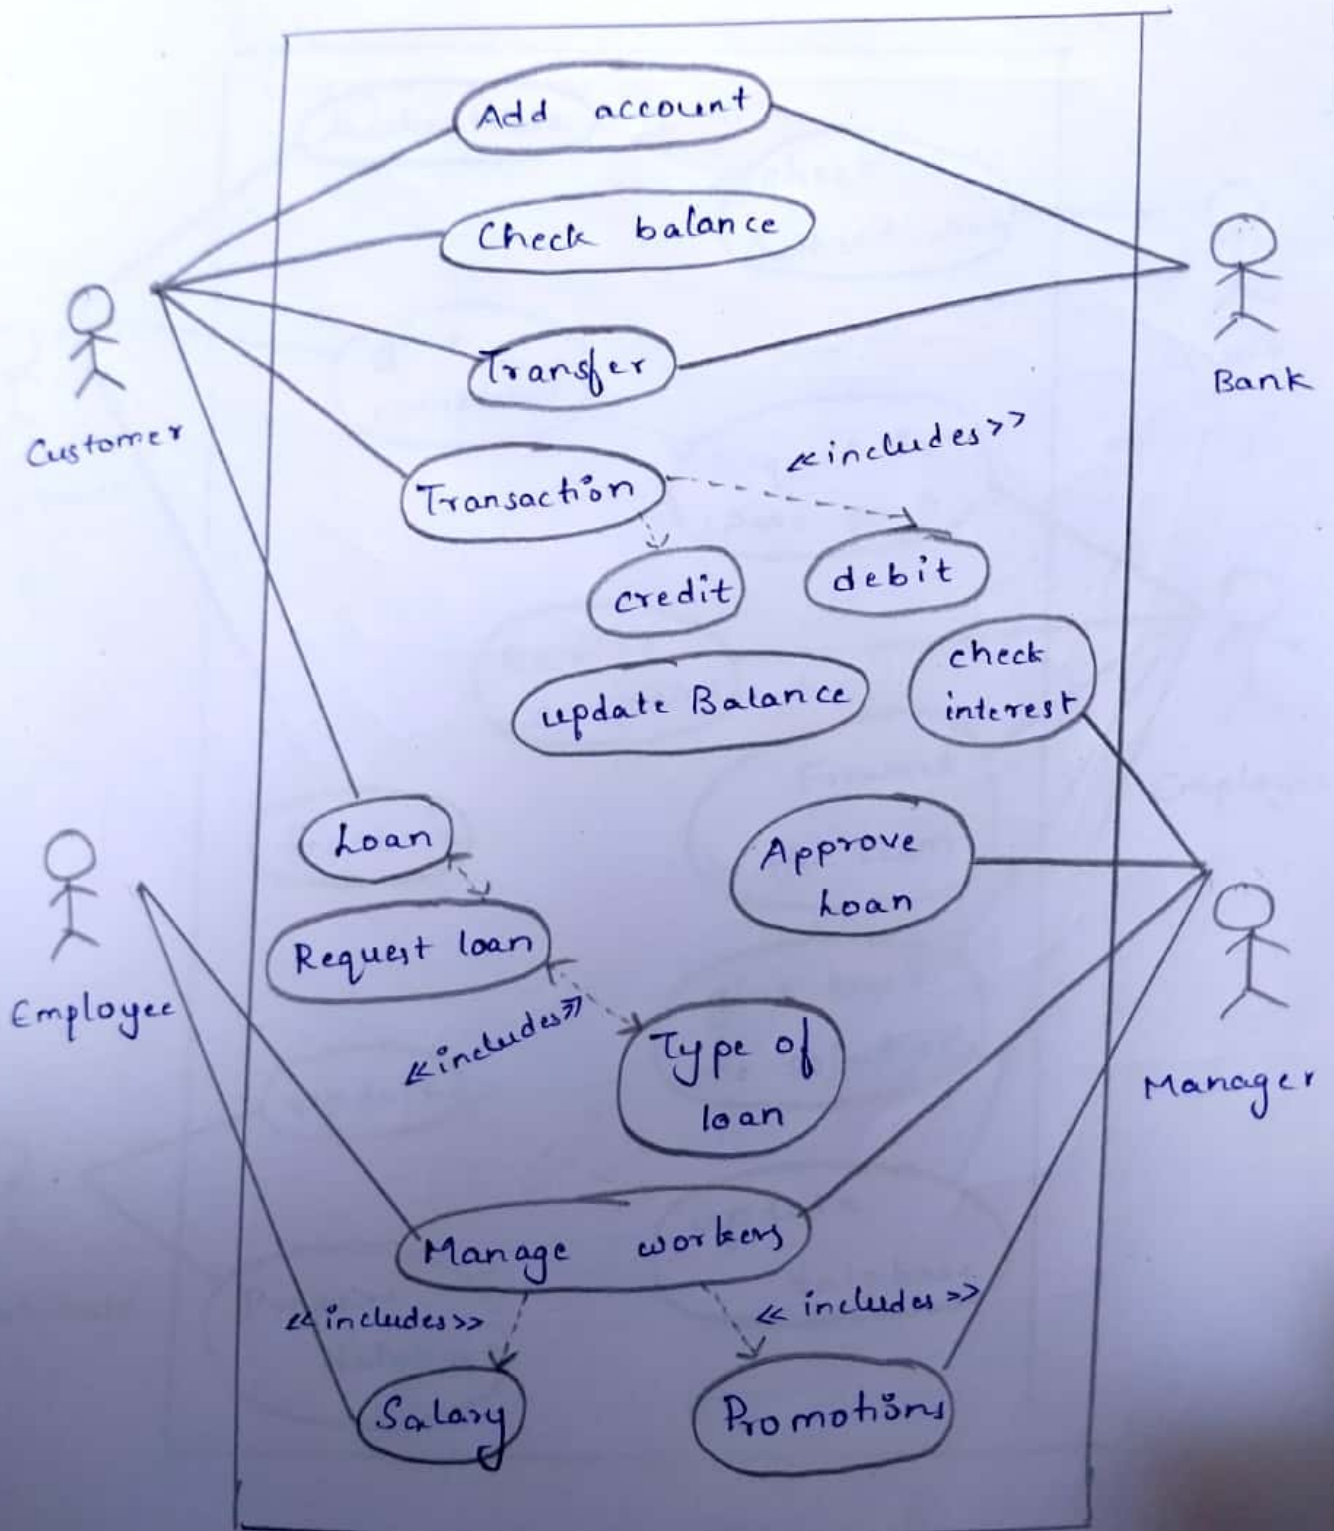 Add account
Check balance
Transfer
Bank
Customer
<<includes>>
Transaction
debit
credit
check
interest
update Balance
Loan
Approve
Loan
Request loan
Employee
<<includes>>
Type of
loan
Manager
Manage workers
<<includes>>
<<includes>>
Salary
Promotions